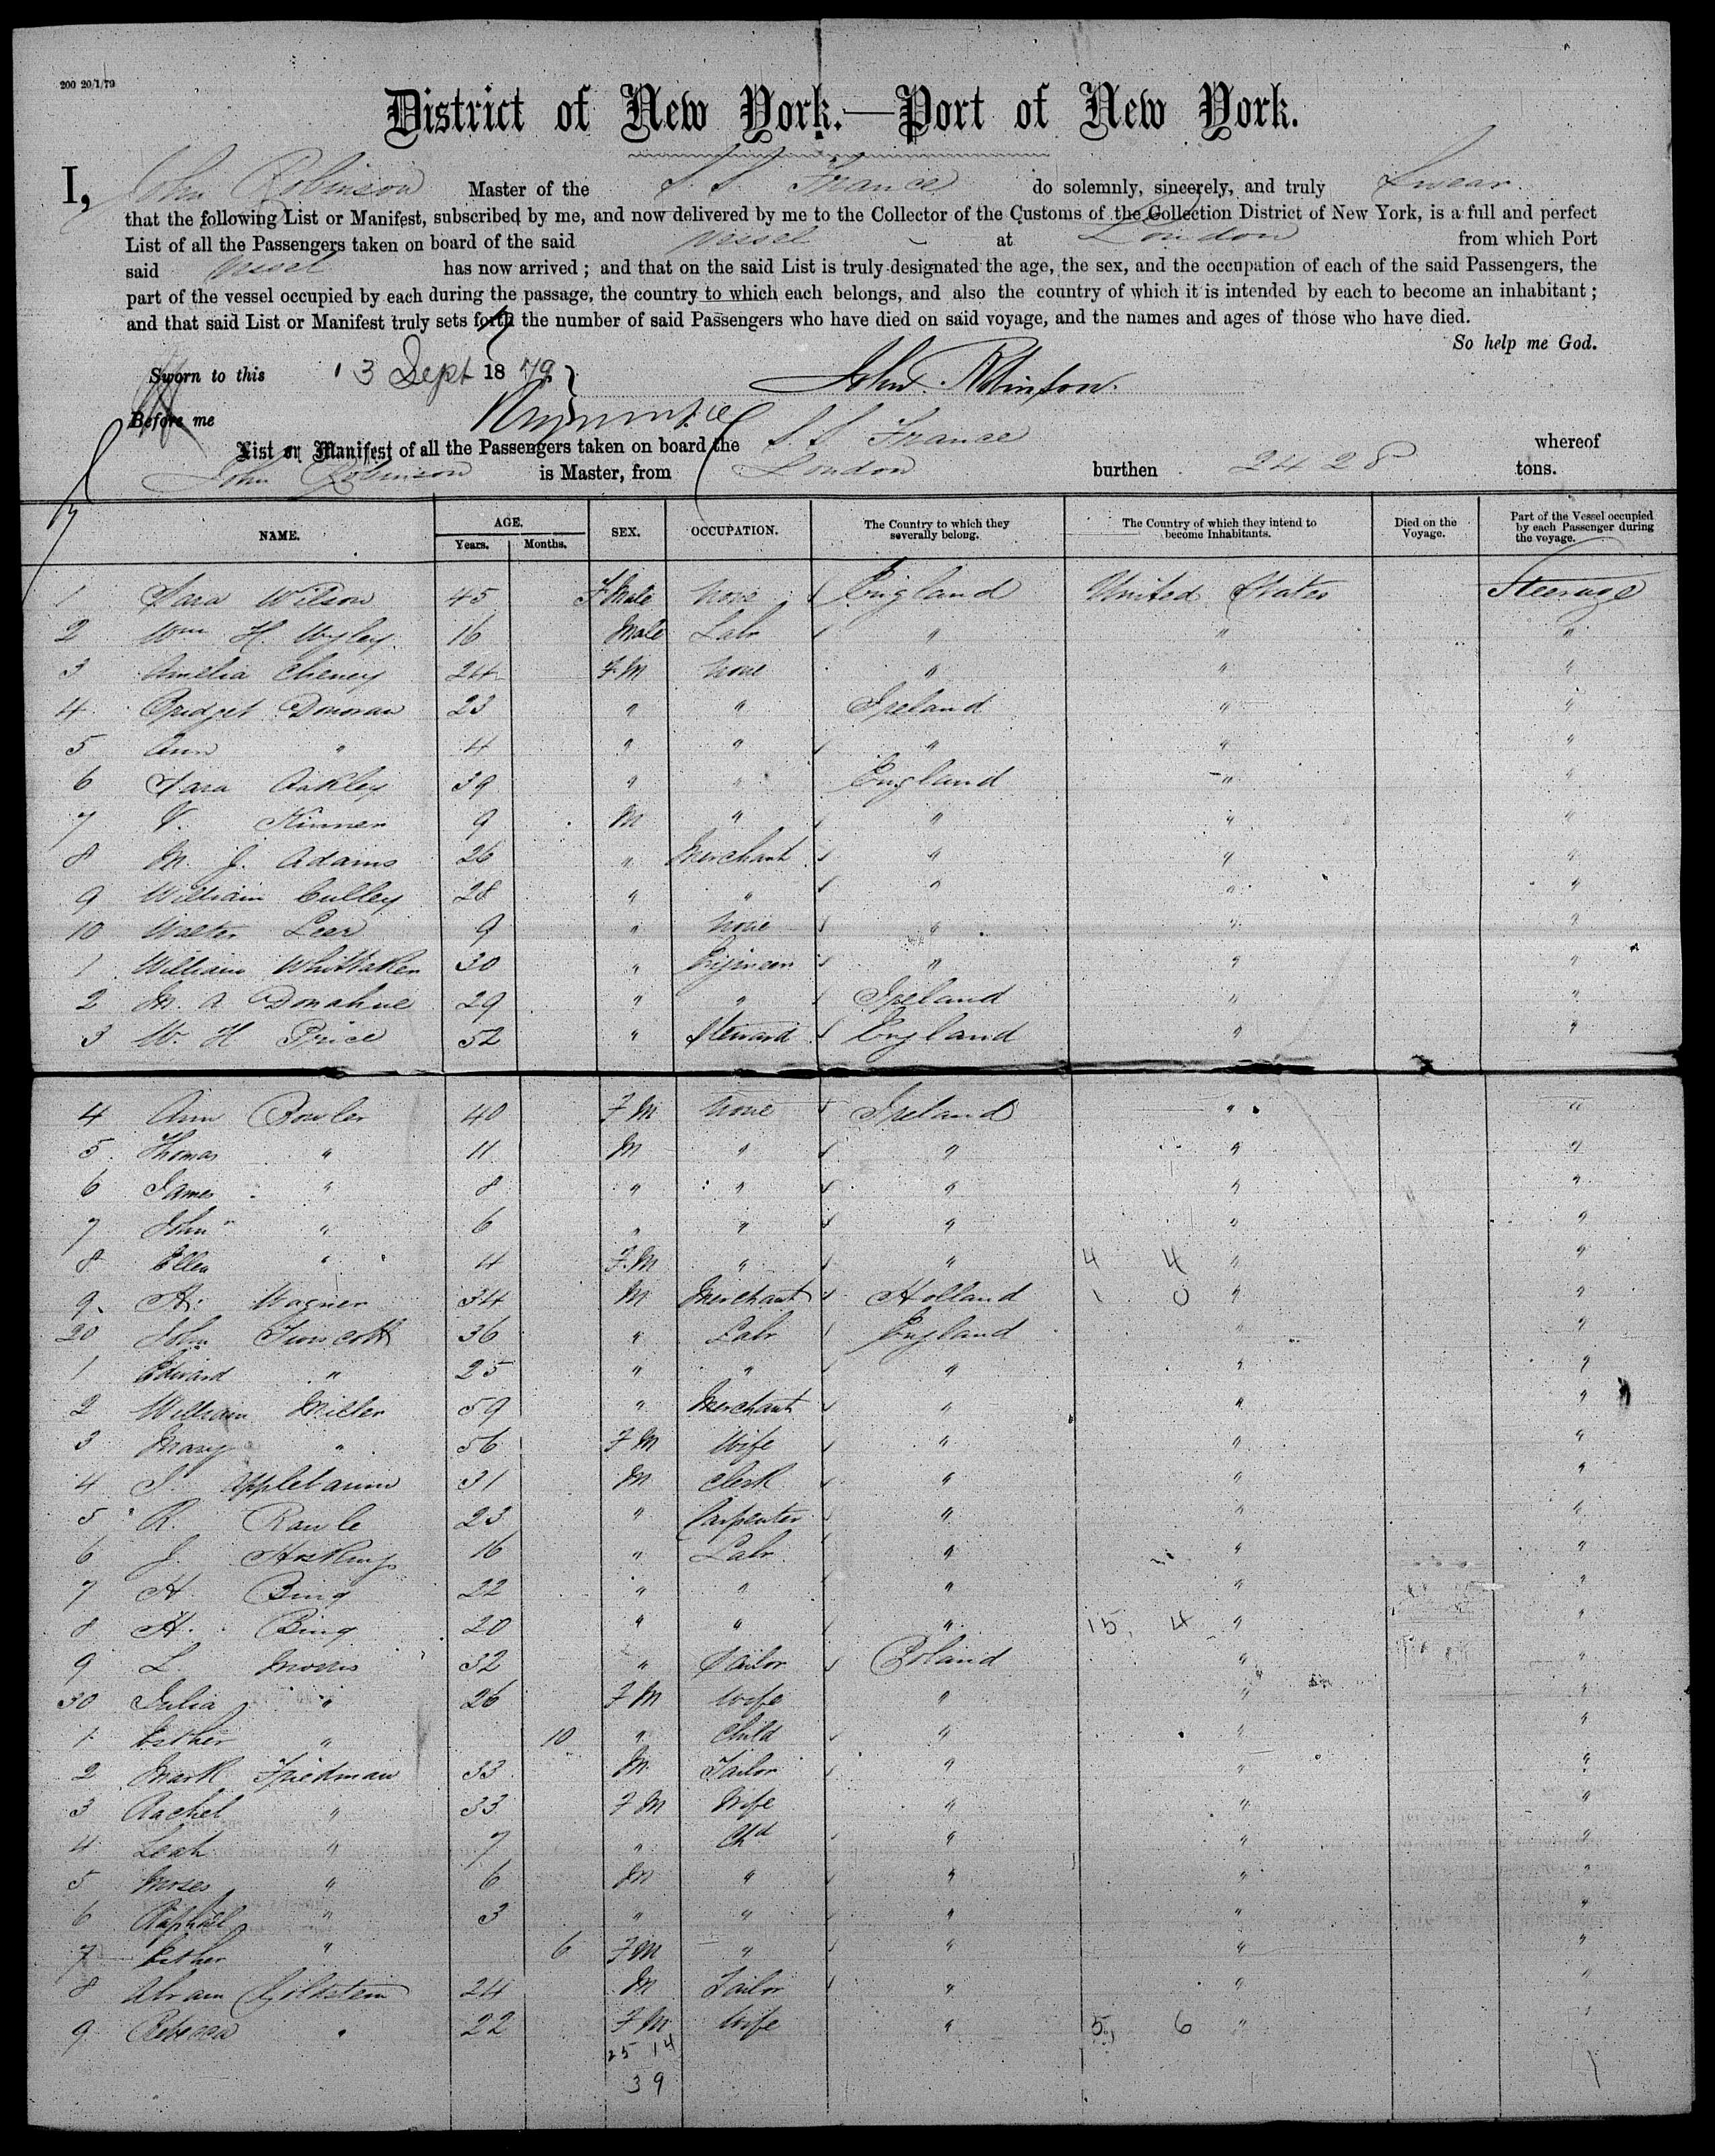 200 20/1/79
District of New York.—Port of New York.
I, John Robinson Master of the S. S. France do solemnly, sincerely, and truly Swear.
that the following List or Manifest, subscribed by me, and now delivered by me to the Collector of the Customs of the Collection District of New York, is a full and perfect
List of all the Passengers taken on board of the said Vessel at London from which Port
said Vessel has now arrived; and that on the said List is truly designated the age, the sex, and the occupation of each of the said Passengers, the
part of the vessel occupied by each during the passage, the country to which each belongs, and also the country of which it is intended by each to become an inhabitant;
and that said List or Manifest truly sets forth the number of said Passengers who have died on said voyage, and the names and ages of those who have died.
So help me God.
Sworn to this 13 Sept 1879 John Robinson.
Before me
List or Manifest of all the Passengers taken on board the S. S. France whereof
John Robinson is Master, from London burthen 2428 tons.
NAME. AGE. Years. Months. SEX. OCCUPATION. The Country to which they severally belong. The Country of which they intend to become Inhabitants. Died on the Voyage. Part of the Vessel occupied by each Passenger during the voyage.
1 Sara Wilson 45 F Male None England United States Steerage
2 Wm H. Wyley 16 Male Labr " " "
3 Amelia Cheney 24 F.M None " " "
4 Bridget Donovan 23 " " Ireland " "
5 Ann " 4 " " " " "
6 Sara Oakley 39 " " England " "
7 V. Kinner 9 M " " " "
8 M. J. Adams 26 " Merchant " " "
9 William Culley 28 " " " " "
10 Walter Leer 9 " None " " "
1 William Whittaker 30 " Engineer " " "
2 M. A Donahue 29 " " Ireland " "
3 W. H Price 52 " Steward England " "
4 Ann Bowler 40 F M None Ireland " "
5 Thomas " 11 M " " " "
6 James " 8 " " " " "
7 John " 6 " " " " "
8 Ellen " 4 F.M " " 4 4 " "
9 H. Wagner 34 M Merchant Holland 1 0 " "
20 John Truscott 36 " Labr England " "
1 Edward " 25 " " " " "
2 William Miller 59 " Merchant " " "
3 Mary " 56 F M Wife " " "
4 S. Applebaum 31 M Clerk " " "
5 R. Rawle 23 " Carpenter " " "
6 J. Hosking 16 " Labr " " "
7 H. Bing 22 " " " " "
8 H. Bing 20 " " " 15, 4 " "
9 L. Morris 32 " Tailor Poland " "
30 Julia " 26 F M Wife " " "
1 Esther " 10 " Child " " "
2 Mark Friedman 33 M Tailor " " "
3 Rachel " 33 F M Wife " " "
4 Leah " 7 " Chd " " "
5 Moses " 6 M " " " "
6 Raphael " 3 " " " " "
7 Esther " 6 F M " " " "
8 Abram Goldstein 24 M Tailor " " "
9 Rebecca " 22 F M Wife " 5, 6 " "
25 14
39